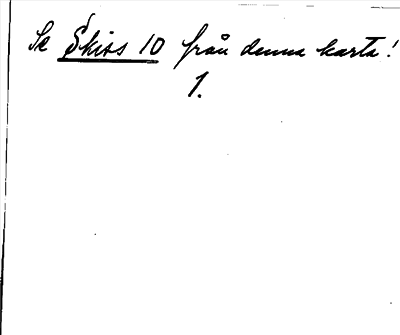 Se Skiss 10 från denna karta!
1.